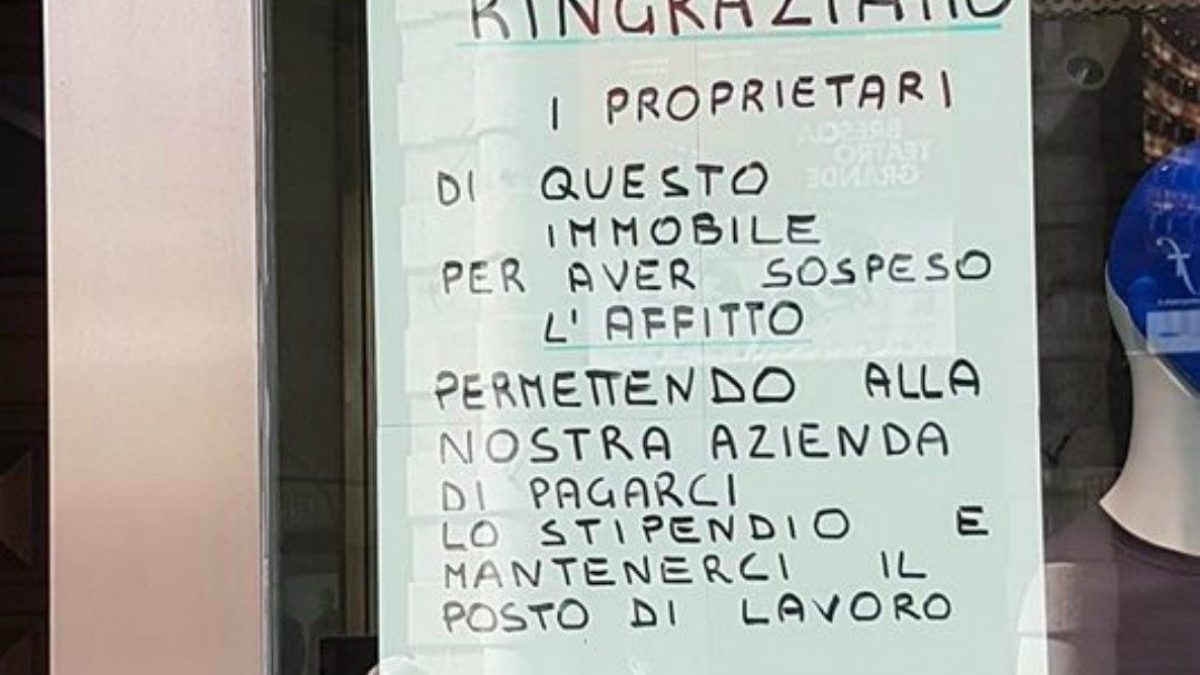 RINGRAZIAMO
I PROPRIETARI
DI QUESTO
IMMOBILE
PER AVER SOSPESO
L'AFFITTO
PERMETTENDO ALLA
NOSTRA AZIENDA
DI PAGARCI
LO STIPENDIO E
MANTENERCI IL
POSTO DI LAVORO
BRESCIA
TEATRO
GRANDE